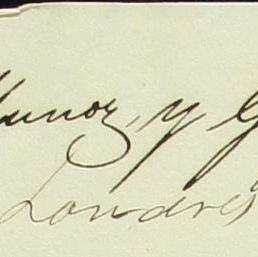 Munoz, y G
Londres